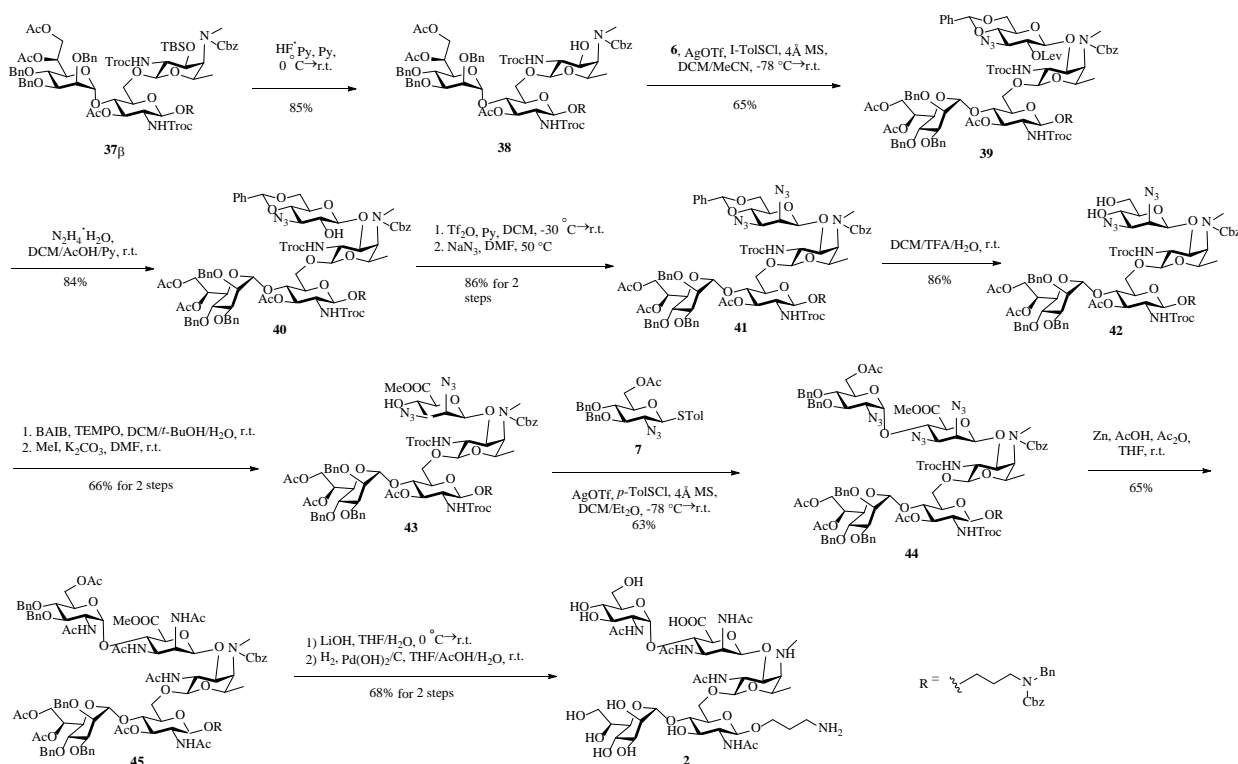 AcO
AcO OBn
BnO
BnO
O
AcO
TBSO
N
Cbz
TrocHN
O
O
OR
NHTroc
37β
HF·Py, Py,
0 °C→r.t.
85%
AcO
AcO OBn
BnO
BnO
O
AcO
HO
N
Cbz
TrocHN
O
O
OR
NHTroc
38
6, AgOTf, I-TolSCl, 4Å MS,
DCM/MeCN, -78 °C→r.t.
65%
Ph
O
O
N3
O
OLev
O
N
Cbz
TrocHN
O
O
BnO
AcO
AcO
BnO
OBn
AcO
OR
NHTroc
39
N2H4·H2O,
DCM/AcOH/Py, r.t.
84%
Ph
O
O
N3
O
OH
O
N
Cbz
TrocHN
O
O
BnO
AcO
AcO
BnO
OBn
AcO
OR
NHTroc
40
1. Tf2O, Py, DCM, -30 °C→r.t.
2. NaN3, DMF, 50 °C
86% for 2
steps
Ph
O
O
N3
N3
O
O
N
Cbz
TrocHN
O
O
BnO
AcO
AcO
BnO
OBn
AcO
OR
NHTroc
41
DCM/TFA/H2O, r.t.
86%
HO
HO
N3
N3
O
O
N
Cbz
TrocHN
O
O
BnO
AcO
AcO
BnO
OBn
AcO
OR
NHTroc
42
1. BAIB, TEMPO, DCM/t-BuOH/H2O, r.t.
2. MeI, K2CO3, DMF, r.t.
66% for 2 steps
MeOOC
HO
N3
N3
O
O
N
Cbz
TrocHN
O
O
BnO
AcO
AcO
BnO
OBn
AcO
OR
NHTroc
43
OAc
BnO
BnO
O
STol
N3
7
AgOTf, p-TolSCl, 4Å MS,
DCM/Et2O, -78 °C→r.t.
63%
OAc
BnO
BnO
O
N3
O
MeOOC
N3
N3
O
O
N
Cbz
TrocHN
O
O
BnO
AcO
AcO
BnO
OBn
AcO
OR
NHTroc
44
Zn, AcOH, Ac2O,
THF, r.t.
65%
OAc
BnO
BnO
O
AcHN
O
MeOOC
NHAc
AcHN
O
O
N
Cbz
AcHN
O
O
BnO
AcO
AcO
BnO
OBn
AcO
OR
NHAc
45
1) LiOH, THF/H2O, 0 °C→r.t.
2) H2, Pd(OH)2/C, THF/AcOH/H2O, r.t.
68% for 2 steps
OH
HO
HO
O
AcHN
O
HOOC
NHAc
AcHN
O
O
NH
AcHN
O
O
HO
HO
HO
HO
OH
HO
O
NHAc
NH2
2
R =
N
Bn
Cbz